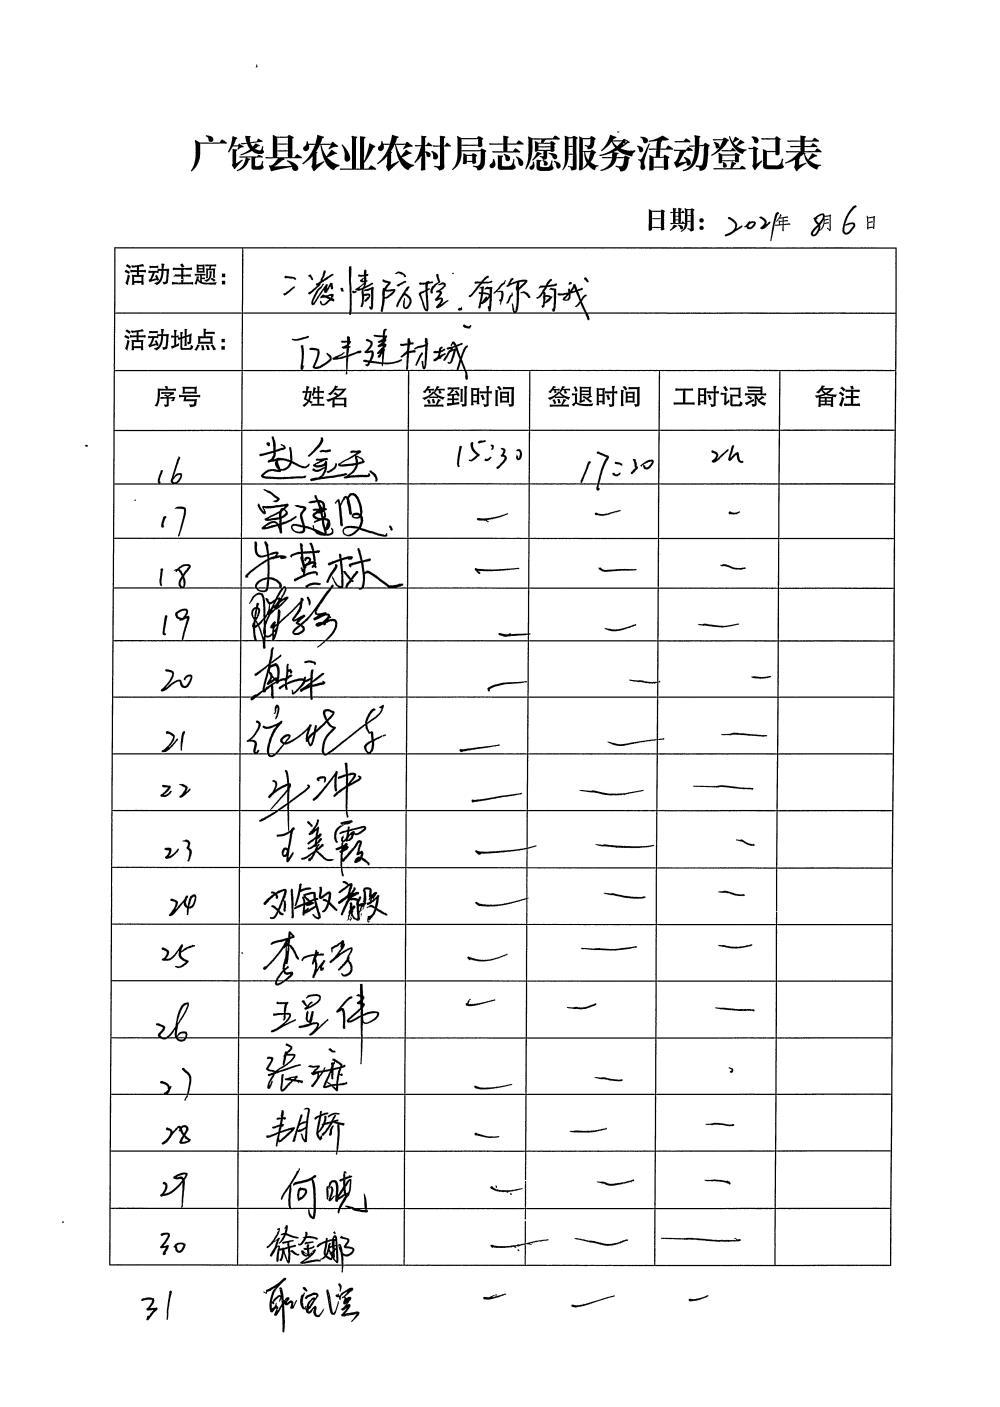 广饶县农业农村局志愿服务活动登记表
日期: 2021年 8月6日
活动主题: 疫情防控.有你有我
活动地点: 亿丰建材城
序号 姓名 签到时间 签退时间 工时记录 备注
16 赵金玉 15:30 17:30 2h
17 宋建设 — — -
18 朱其林 — — —
19 — — —
20 韩平 — — —
21 张晓东 — — —
22 牛冲 — — —
23 王美霞 — — -
24 刘敏毅 — — —
25 李 — — —
26 王昱伟 — — —
27 张 — —
28 韦月娇 — — —
29 何晓 — — —
30 徐金娜 — — —
31 — — —